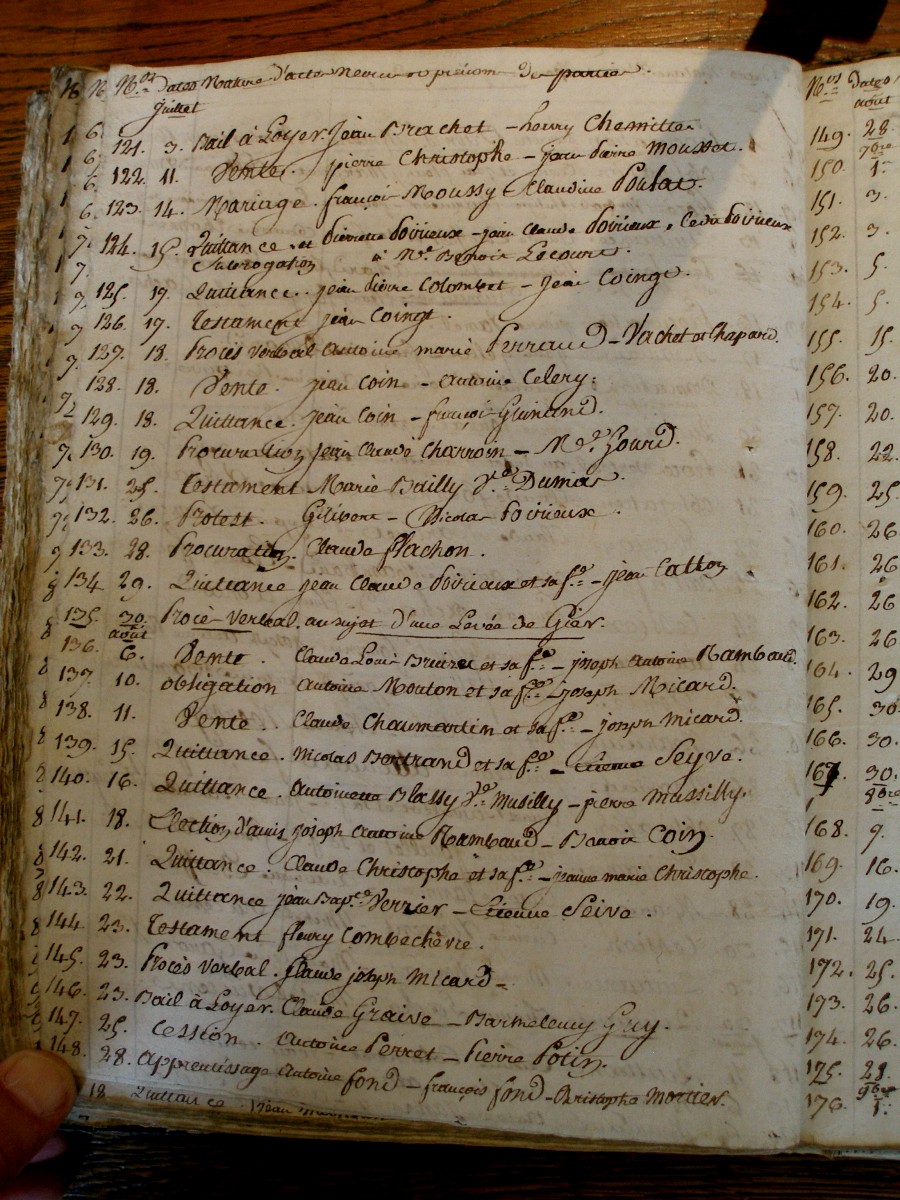 N.os Dates Nature d'actes Noms et prénoms des parties.
Juillet
121. 3. Bail à Loyer. Jean Brachet - henry Chemitte
122. 11. Vente. pierre Christophe - jean pierre Mousset.
123. 14. Mariage. françois Moussy Claudine Poulat.
124. 15. Quittance et pierrette Poirieux - jean Claude Poirieux, Poirieux
Subrogation Benoit Lecourt.
125. 17. Quittance. jean pierre Colombet - Jean Coingt.
126. 17. Testament jean Coingt.
127. 18. Procès verbal antoine marie Perraud - Vachet et Chapard.
128. 18. Vente. jean Coin - antoine Celery.
129. 18. Quittance. jean Coin - françois Guinand.
130. 19. Procuration Jean Claude Charroin - Gourd.
131. 25. Testament Marie Bailly v.e Dumas.
132. 26. Protest. - Nicolas Poirieux.
133. 28. Procuration. Claude flachon.
134. 29. Quittance jean Claude Poirieux et sa f.e - jean Catton
135. 30. Procès-verbal. au sujet d'une Levée de Gier.
août
136. 6. Vente. Claude Louis et sa f.e - joseph Antoine Rambaud.
137. 10. obligation Antoine Mouton et sa f.e joseph Micard.
138. 11. Vente. Claude Chaumartin et sa f.e - joseph Micard.
139. 15. Quittance. Nicolas Bontrand et sa f.e - Etienne Seyve.
140. 16. Quittance. Antoinette Blassy v.e Musilly - pierre Mussilly.
141. 18. Election d'amis joseph Antoine Rambaud - Benoit Coin.
142. 21. Quittance. Claude Christophe et sa f.e - jeanne marie Christophe.
143. 22. Quittance jean Bap.te Verzier - Etienne Seive.
144. 23. Testament fleury Combechévre.
145. 23. Procès verbal. Claude joseph Micard -
146. 23. Bail à Loyer. Claude Graive - Barthelemy Guy.
147. 25. Cession. Antoine Perret - Pierre Potin.
148. 28. Apprentissage Antoine fond - françois fond - Christophe Mortier.
18. Quittance. jean
N.os Dates
août
149. 28.
7bre
150. 1.
151. 3.
152. 3.
153. 5.
154. 5.
155. 15.
156. 20.
157. 20.
158. 22.
159. 25.
160. 26
161. 26
162. 26
163. 26
164. 29
165. 30
166. 30.
167. 30.
8bre
168. 9.
169. 16.
170. 19.
171. 24
172. 25.
173. 26.
174. 26.
175. 28.
9bre
176. 1.